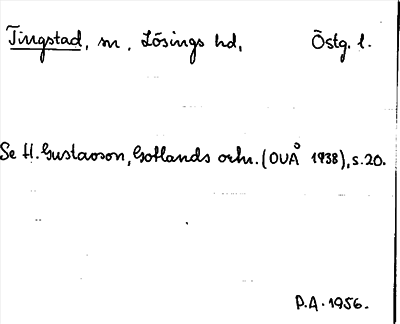 Tingstad, sn, Lösings hd, Östg. l.
Se H. Gustavson, Gotlands ortn. (OUÅ 1938), s. 20.
P.A. 1956.